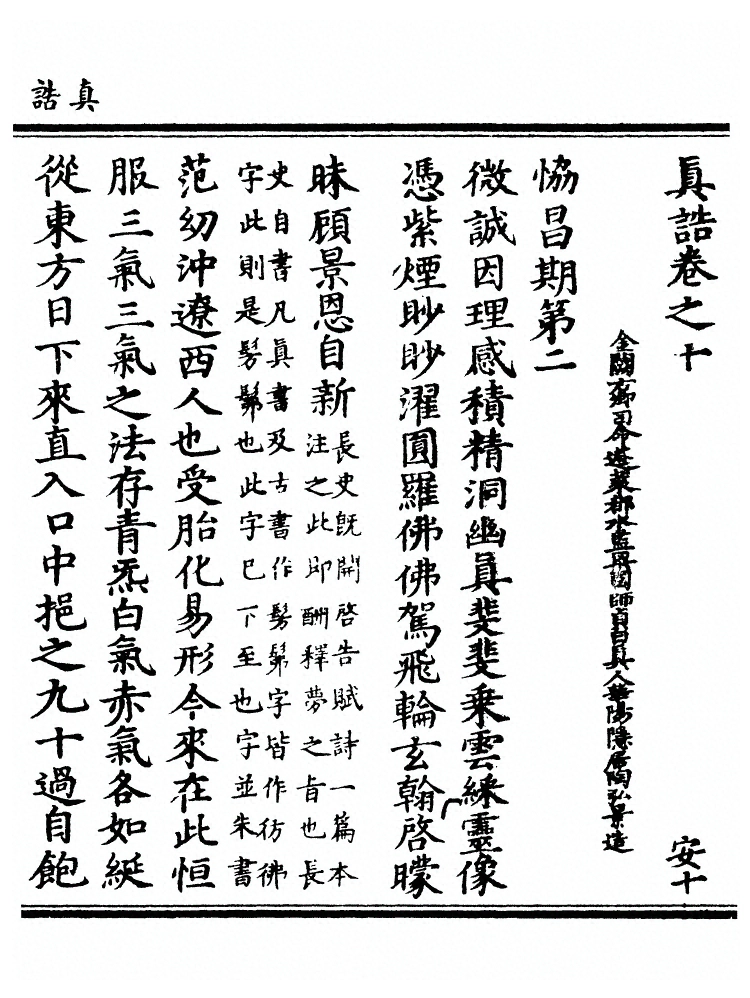 真誥
真誥卷之十 安十
金闕右卿司命蓬萊都水監梁國師貞白真人華陽隱居陶弘景造
恊昌期第二
微誠因理感積精洞幽真斐斐乘雲綵靈像
憑紫煙眇眇濯圓羅佛佛駕飛輪玄翰啓矇
昧顧景恩自新
長史既開啓告賦詩一篇本
注之此即酬釋夢之旨也長
史自書凡真書及古書作髣髴字皆作彷佛
字此則是髣髴也此字巳下至也字並朱書
范幼沖遼西人也受胎化易形今來在此恒
服三氣三氣之法存青炁白氣赤氣各如綖
從東方日下來直入口中挹之九十過自飽